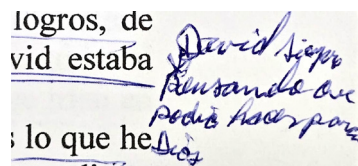 logros, de
vid estaba
s lo que he
David siepre
pensando que
podia hacer para
Dios